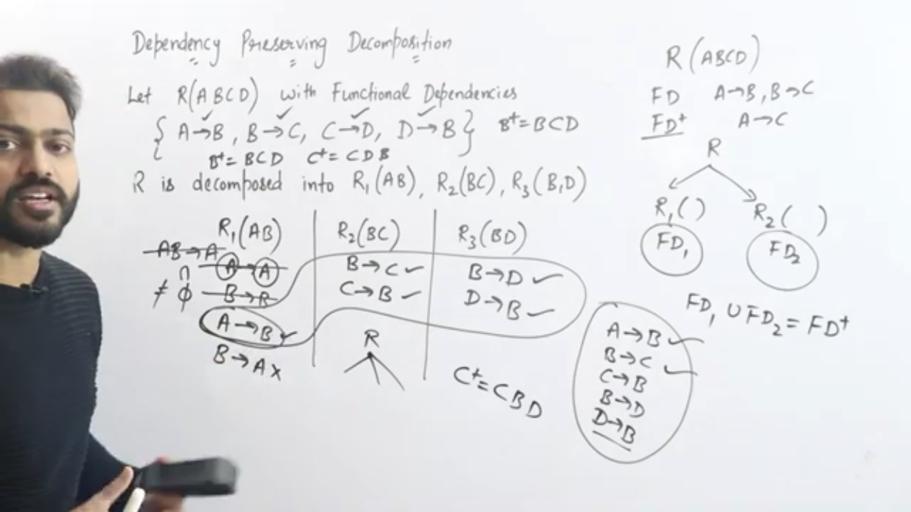 Dependency Preserving Decomposition
Let R(ABCD) with Functional Dependencies
{A→B, B→C, C→D, D→B} B⁺=BCD
B⁺=BCD C⁺=CDB
R is decomposed into R₁(AB), R₂(BC), R₃(B,D)
R₁(AB)
AB→A
A→A
∩
≠ ϕ B→B
A→B ✓
B→A x
R₂(BC)
B→C ✓
C→B ✓
R
R₃(BD)
B→D ✓
D→B ✓
C⁺=CBD
R(ABCD)
FD A→B, B→C
FD⁺ A→C
R
R₁( ) R₂( )
FD₁ FD₂
FD₁ ∪ FD₂ = FD⁺
A→B ✓
B→C ✓
C→B
B→D
D→B